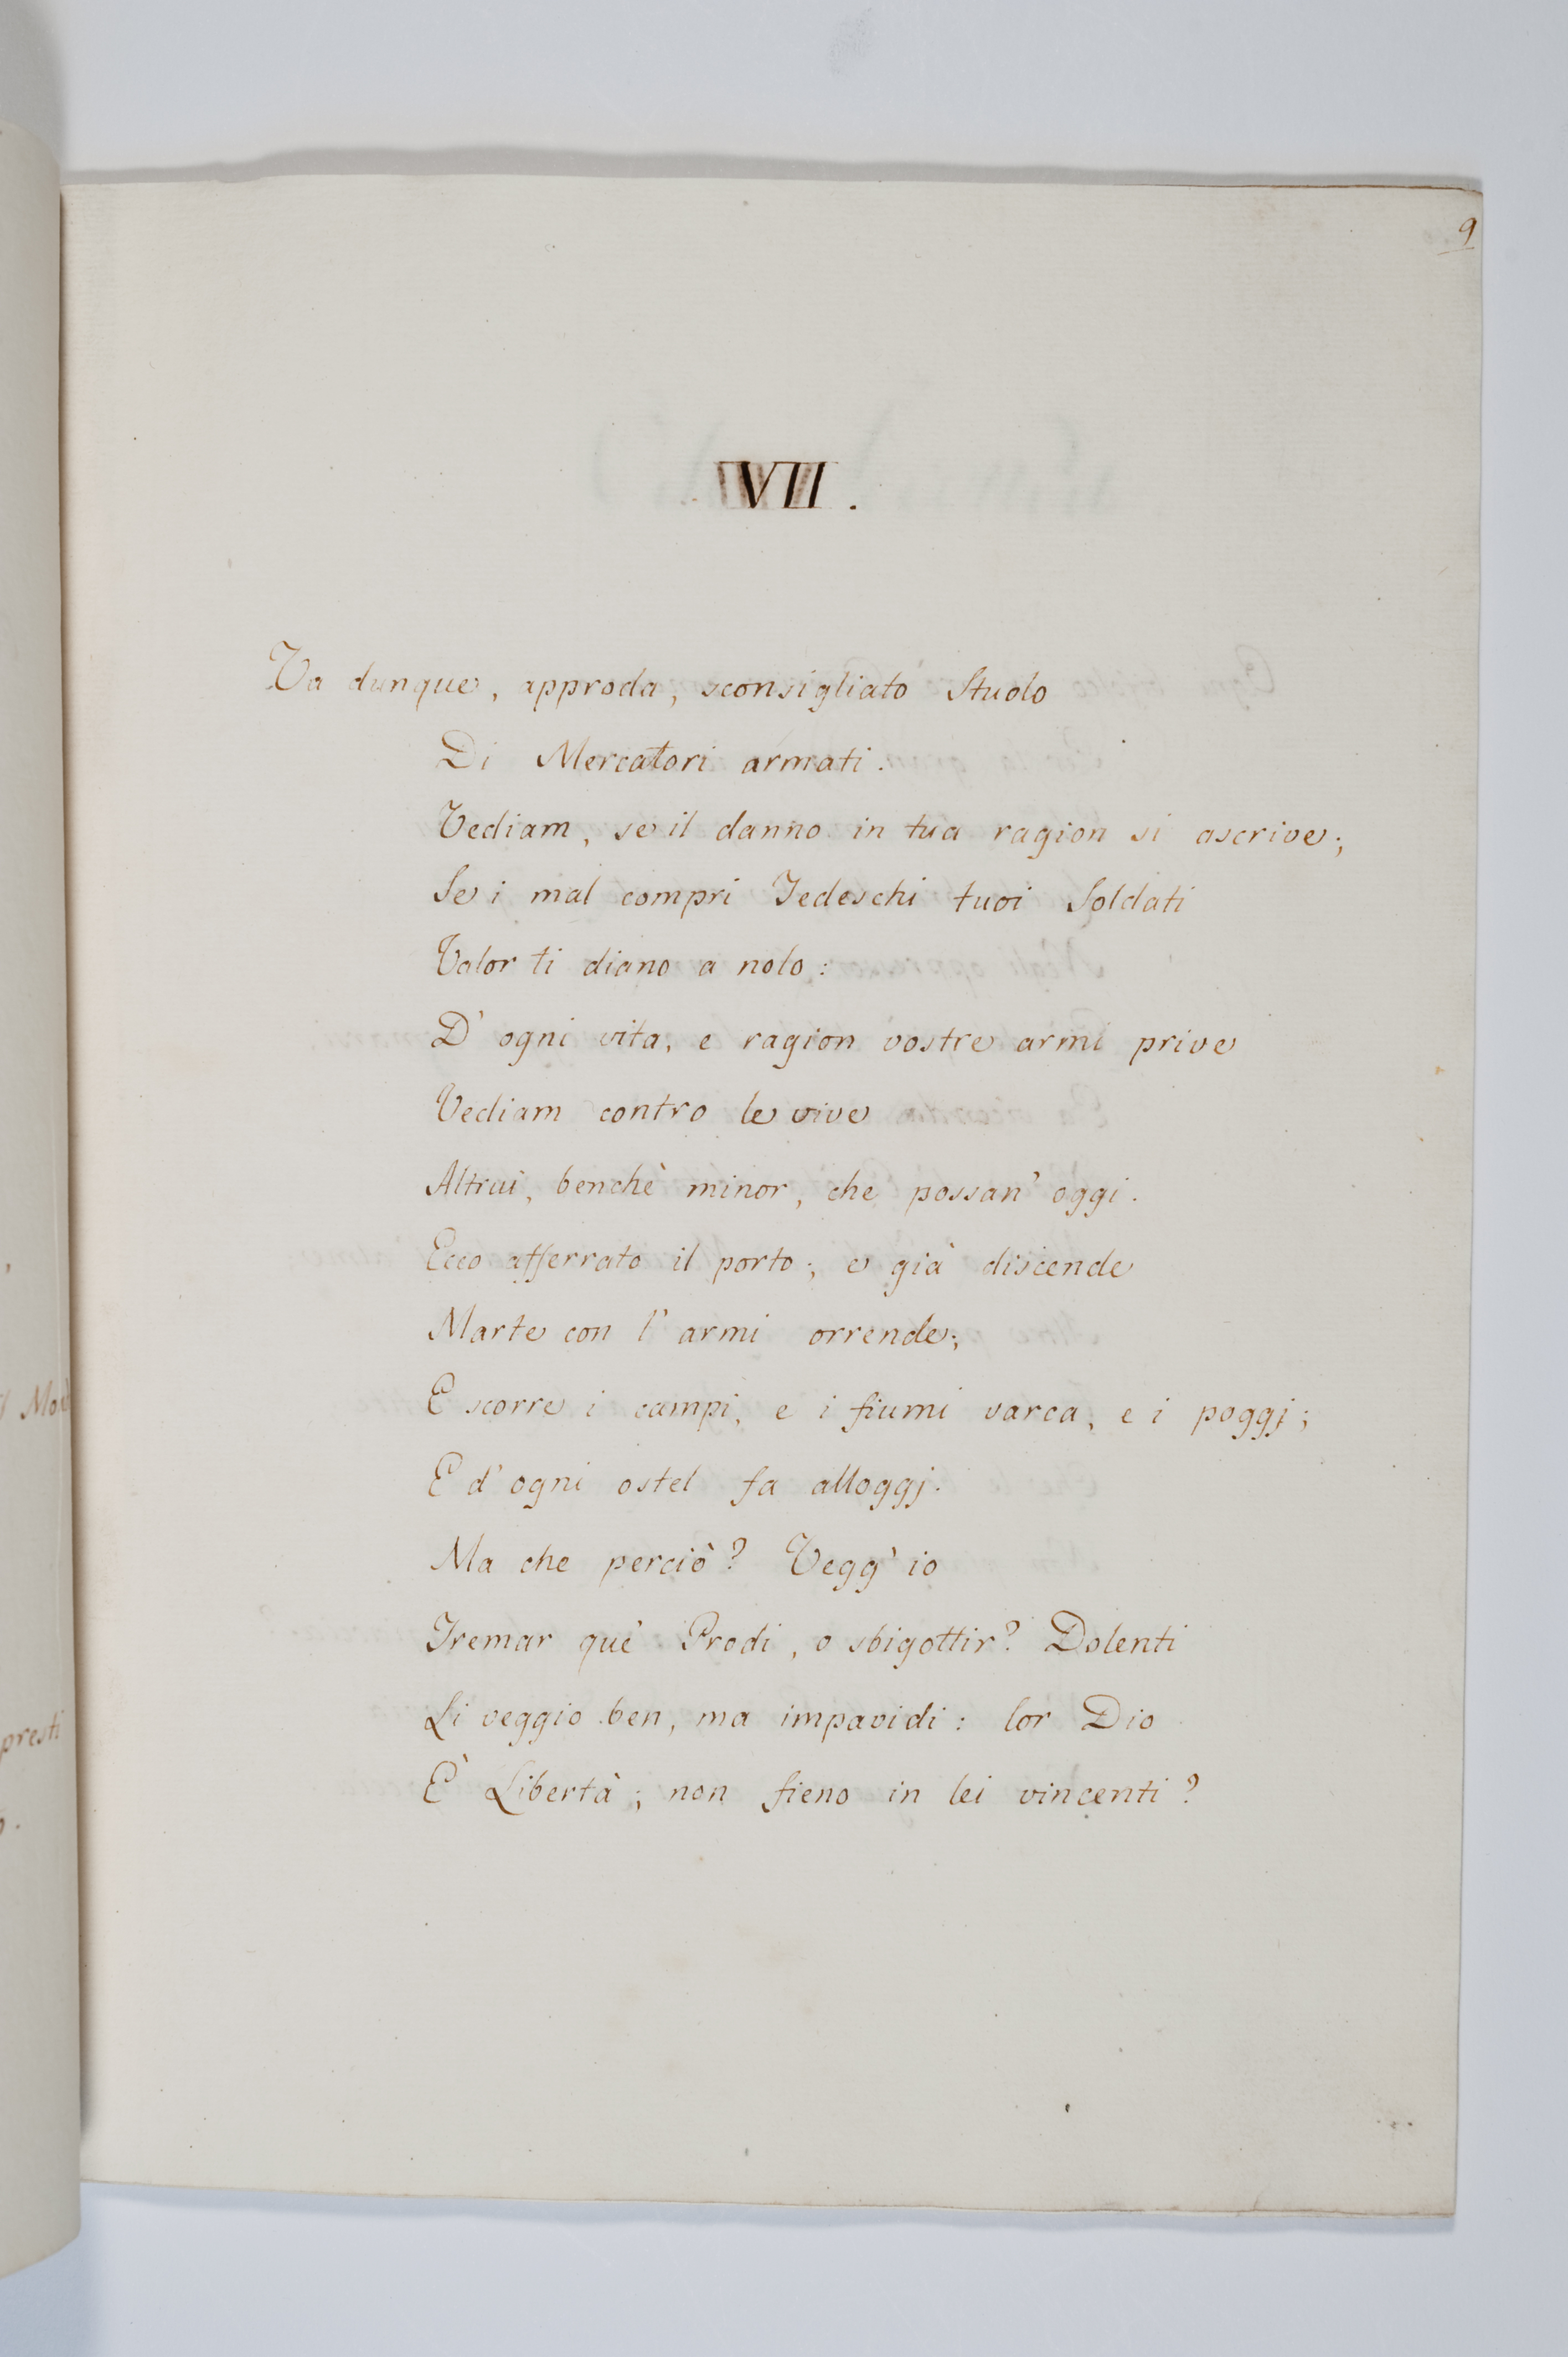 9
VII.
Va dunque, approda, sconsigliato Stuolo
Di Mercatori armati.
Vediam, se il danno in tua ragion si ascrive;
Se i mal compri Tedeschi tuoi Soldati
Valor ti diano a nolo:
D' ogni vita, e ragion vostre armi prive
Vediam contro le vive
Altrui, benchè minor, che possan' oggi.
Ecco afferrato il porto; e già discende
Marte con l' armi orrende;
E scorre i campi, e i fiumi varca, e i poggj;
E d' ogni ostel fa alloggj.
Ma che perciò? Vegg' io
Tremar què Prodi, o sbigottir? Dolenti
Li veggio ben, ma impavidi: lor Dio
È Libertà; non fieno in lei vincenti?
presti